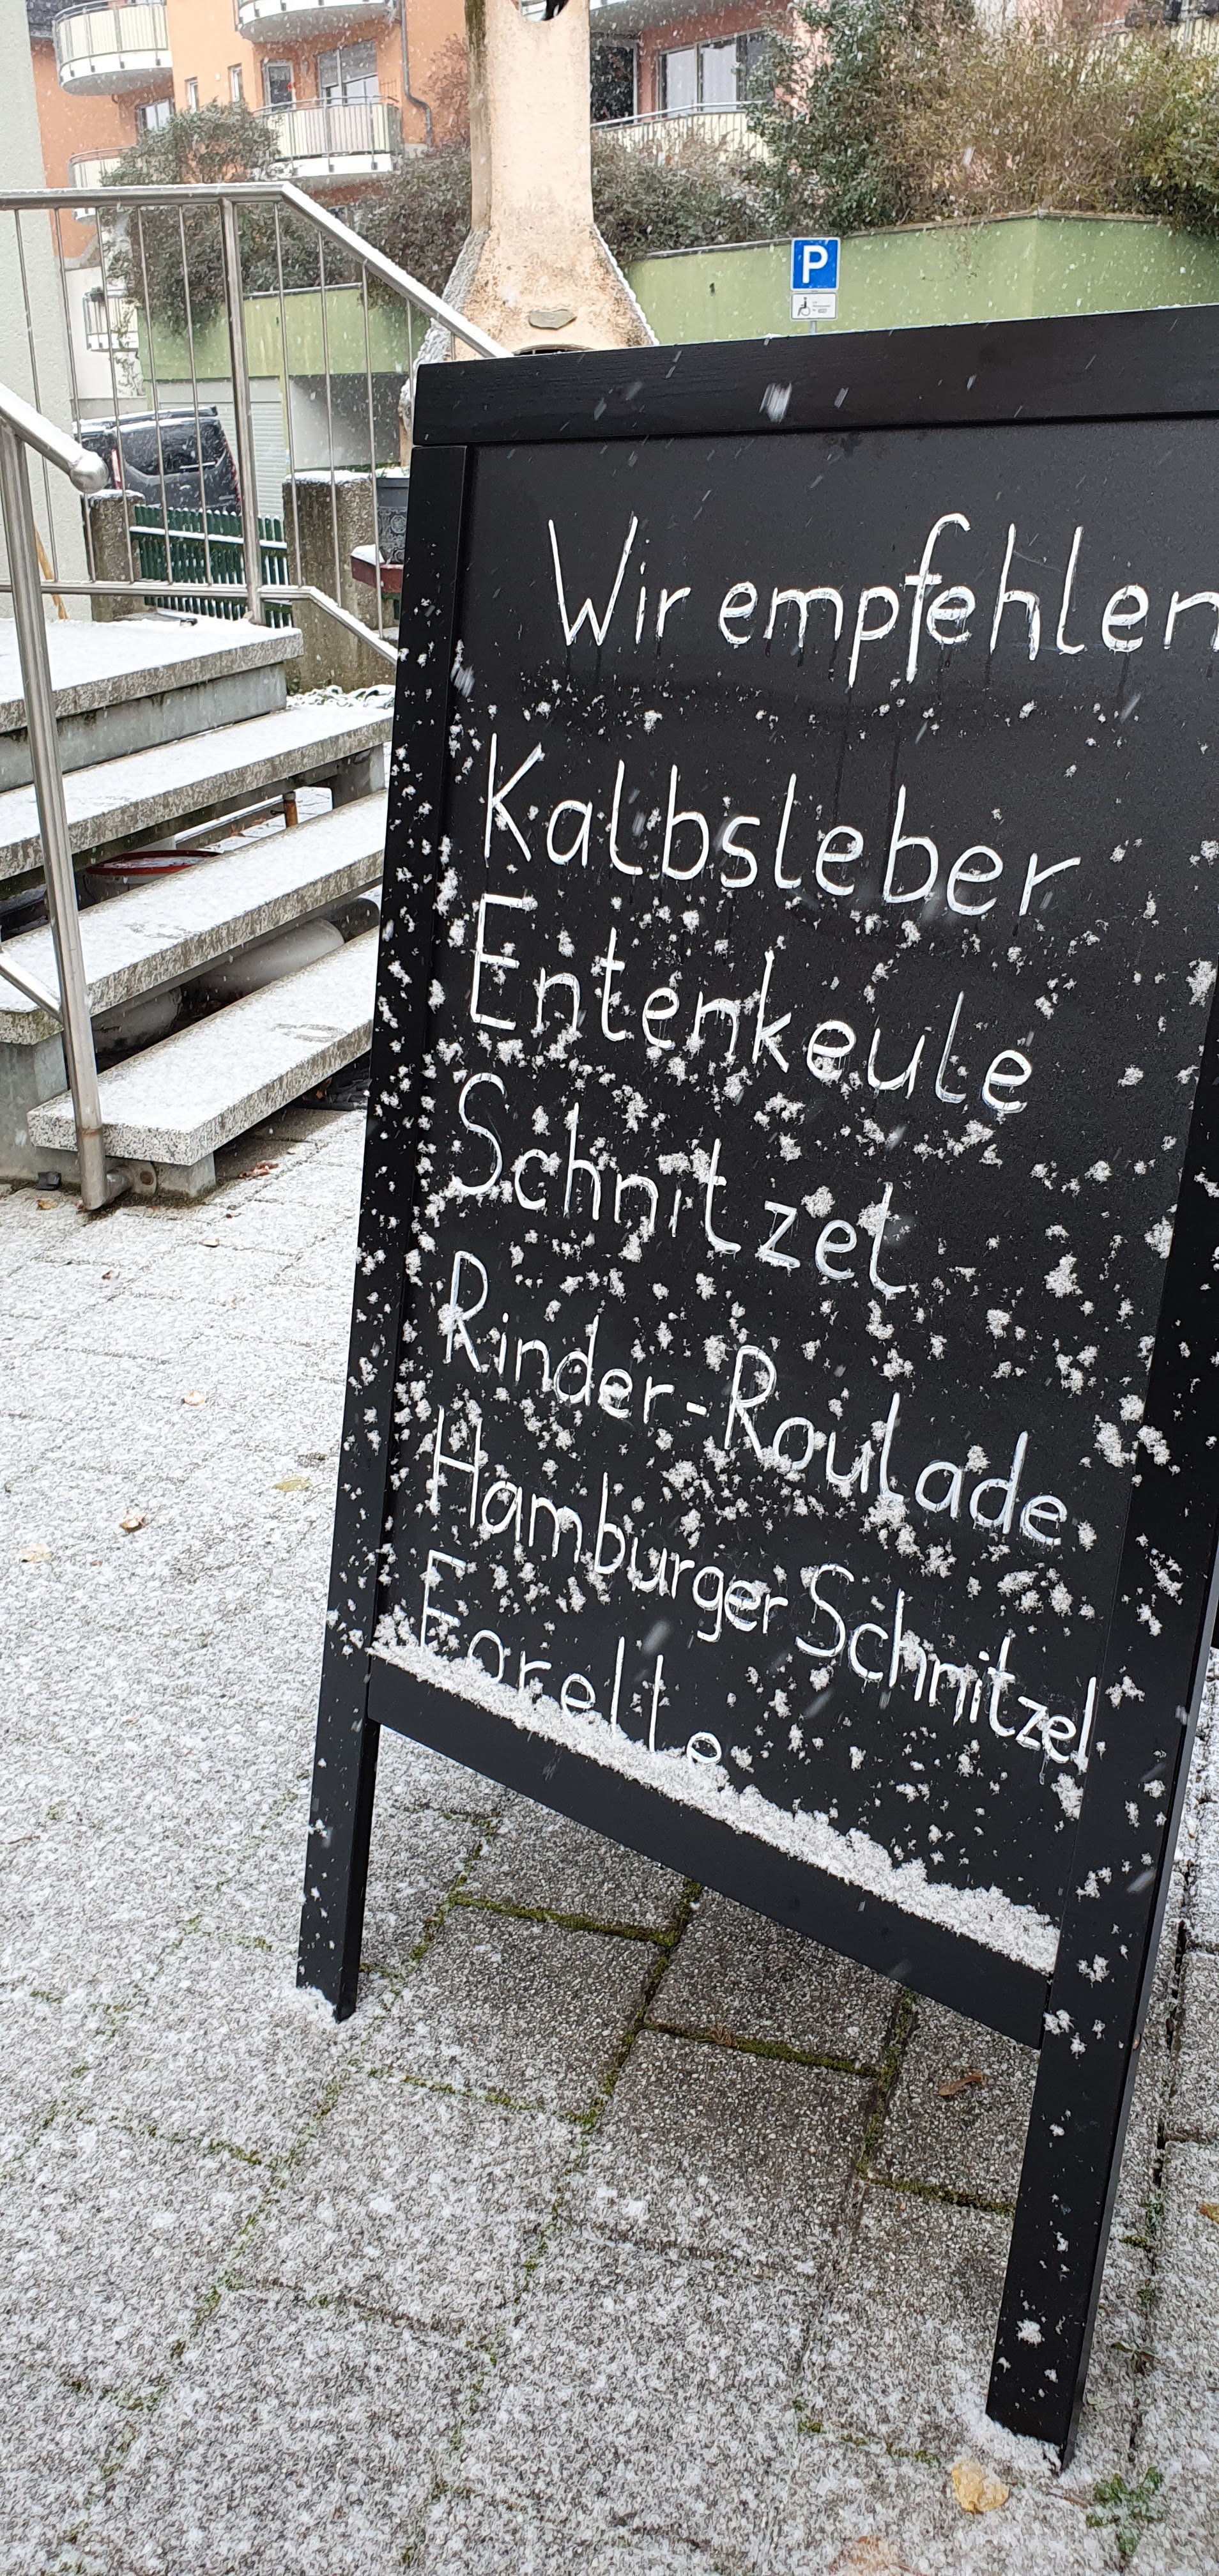 P
Wir empfehlen
Kalbsleber
Entenkeule
Schnitzel
Rinder-Roulade
Hamburger Schnitzel
Forelle